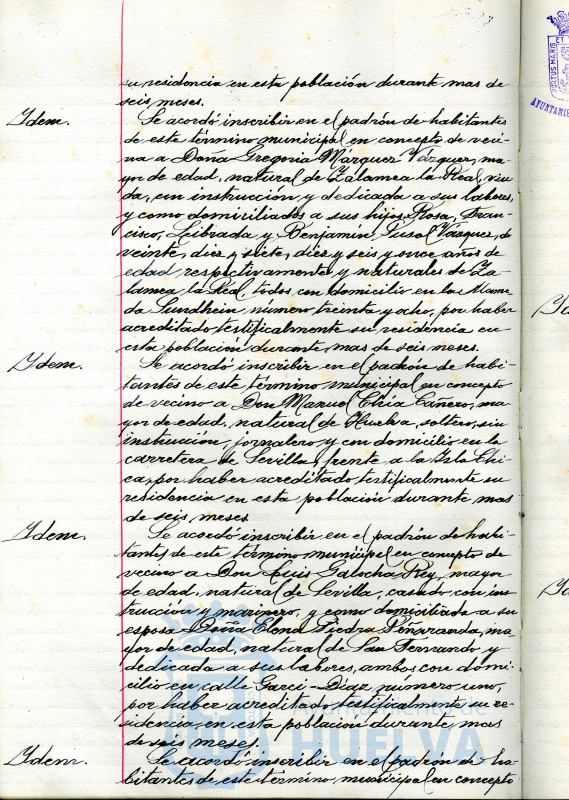 su residencia en esta población durante mas de
seis meses.
Idem. Se acordó inscribir en el padrón de habitantes
de este término municipal en concepto de veci-
na a Doña Gregoria Márquez Vázquez, ma-
yor de edad, natural de Zalamea la Real, viu-
da, sin instrucción y dedicada a sus labores,
y como domiciliados a sus hijos Rosa, Fran-
cisco, Librada y Benjamín Vázquez, de
veinte, diez y siete, diez y seis y once años de
edad respectivamente y naturales de Za-
lamea la Real, todos con domicilio en la Alame-
da Sundheim número treinta y ocho, por haber
acreditado testificalmente su residencia en
esta población durante mas de seis meses.
Idem. Se acordó inscribir en el padrón de habi-
tantes de este término municipal en concepto
de vecino a Don Manuel Cañero, ma-
yor de edad, natural de Huelva, soltero, sin
instrucción, jornalero y con domicilio en la
carretera de Sevilla, frente a la Isla Chi-
ca, por haber acreditado testificalmente su
residencia en esta población durante mas
de seis meses.
Idem. Se acordó inscribir en el padrón de habi-
tantes de este término municipal en concepto de
vecino a Don Luis Galocha Rey, mayor
de edad, natural de Sevilla, casado con ins-
trucción y marinero, y como domiciliada a su
esposa Doña Elena Piedra Peñaranda, ma-
yor de edad, natural de San Fernando y
dedicada a sus labores, ambos con domi-
cilio en calle Garci-Diaz número uno,
por haber acreditado testificalmente su re-
sidencia en esta población durante mas
de seis meses.
Idem. Se acordó inscribir en el padrón de ha-
bitantes de este término municipal en concepto
HUELVA